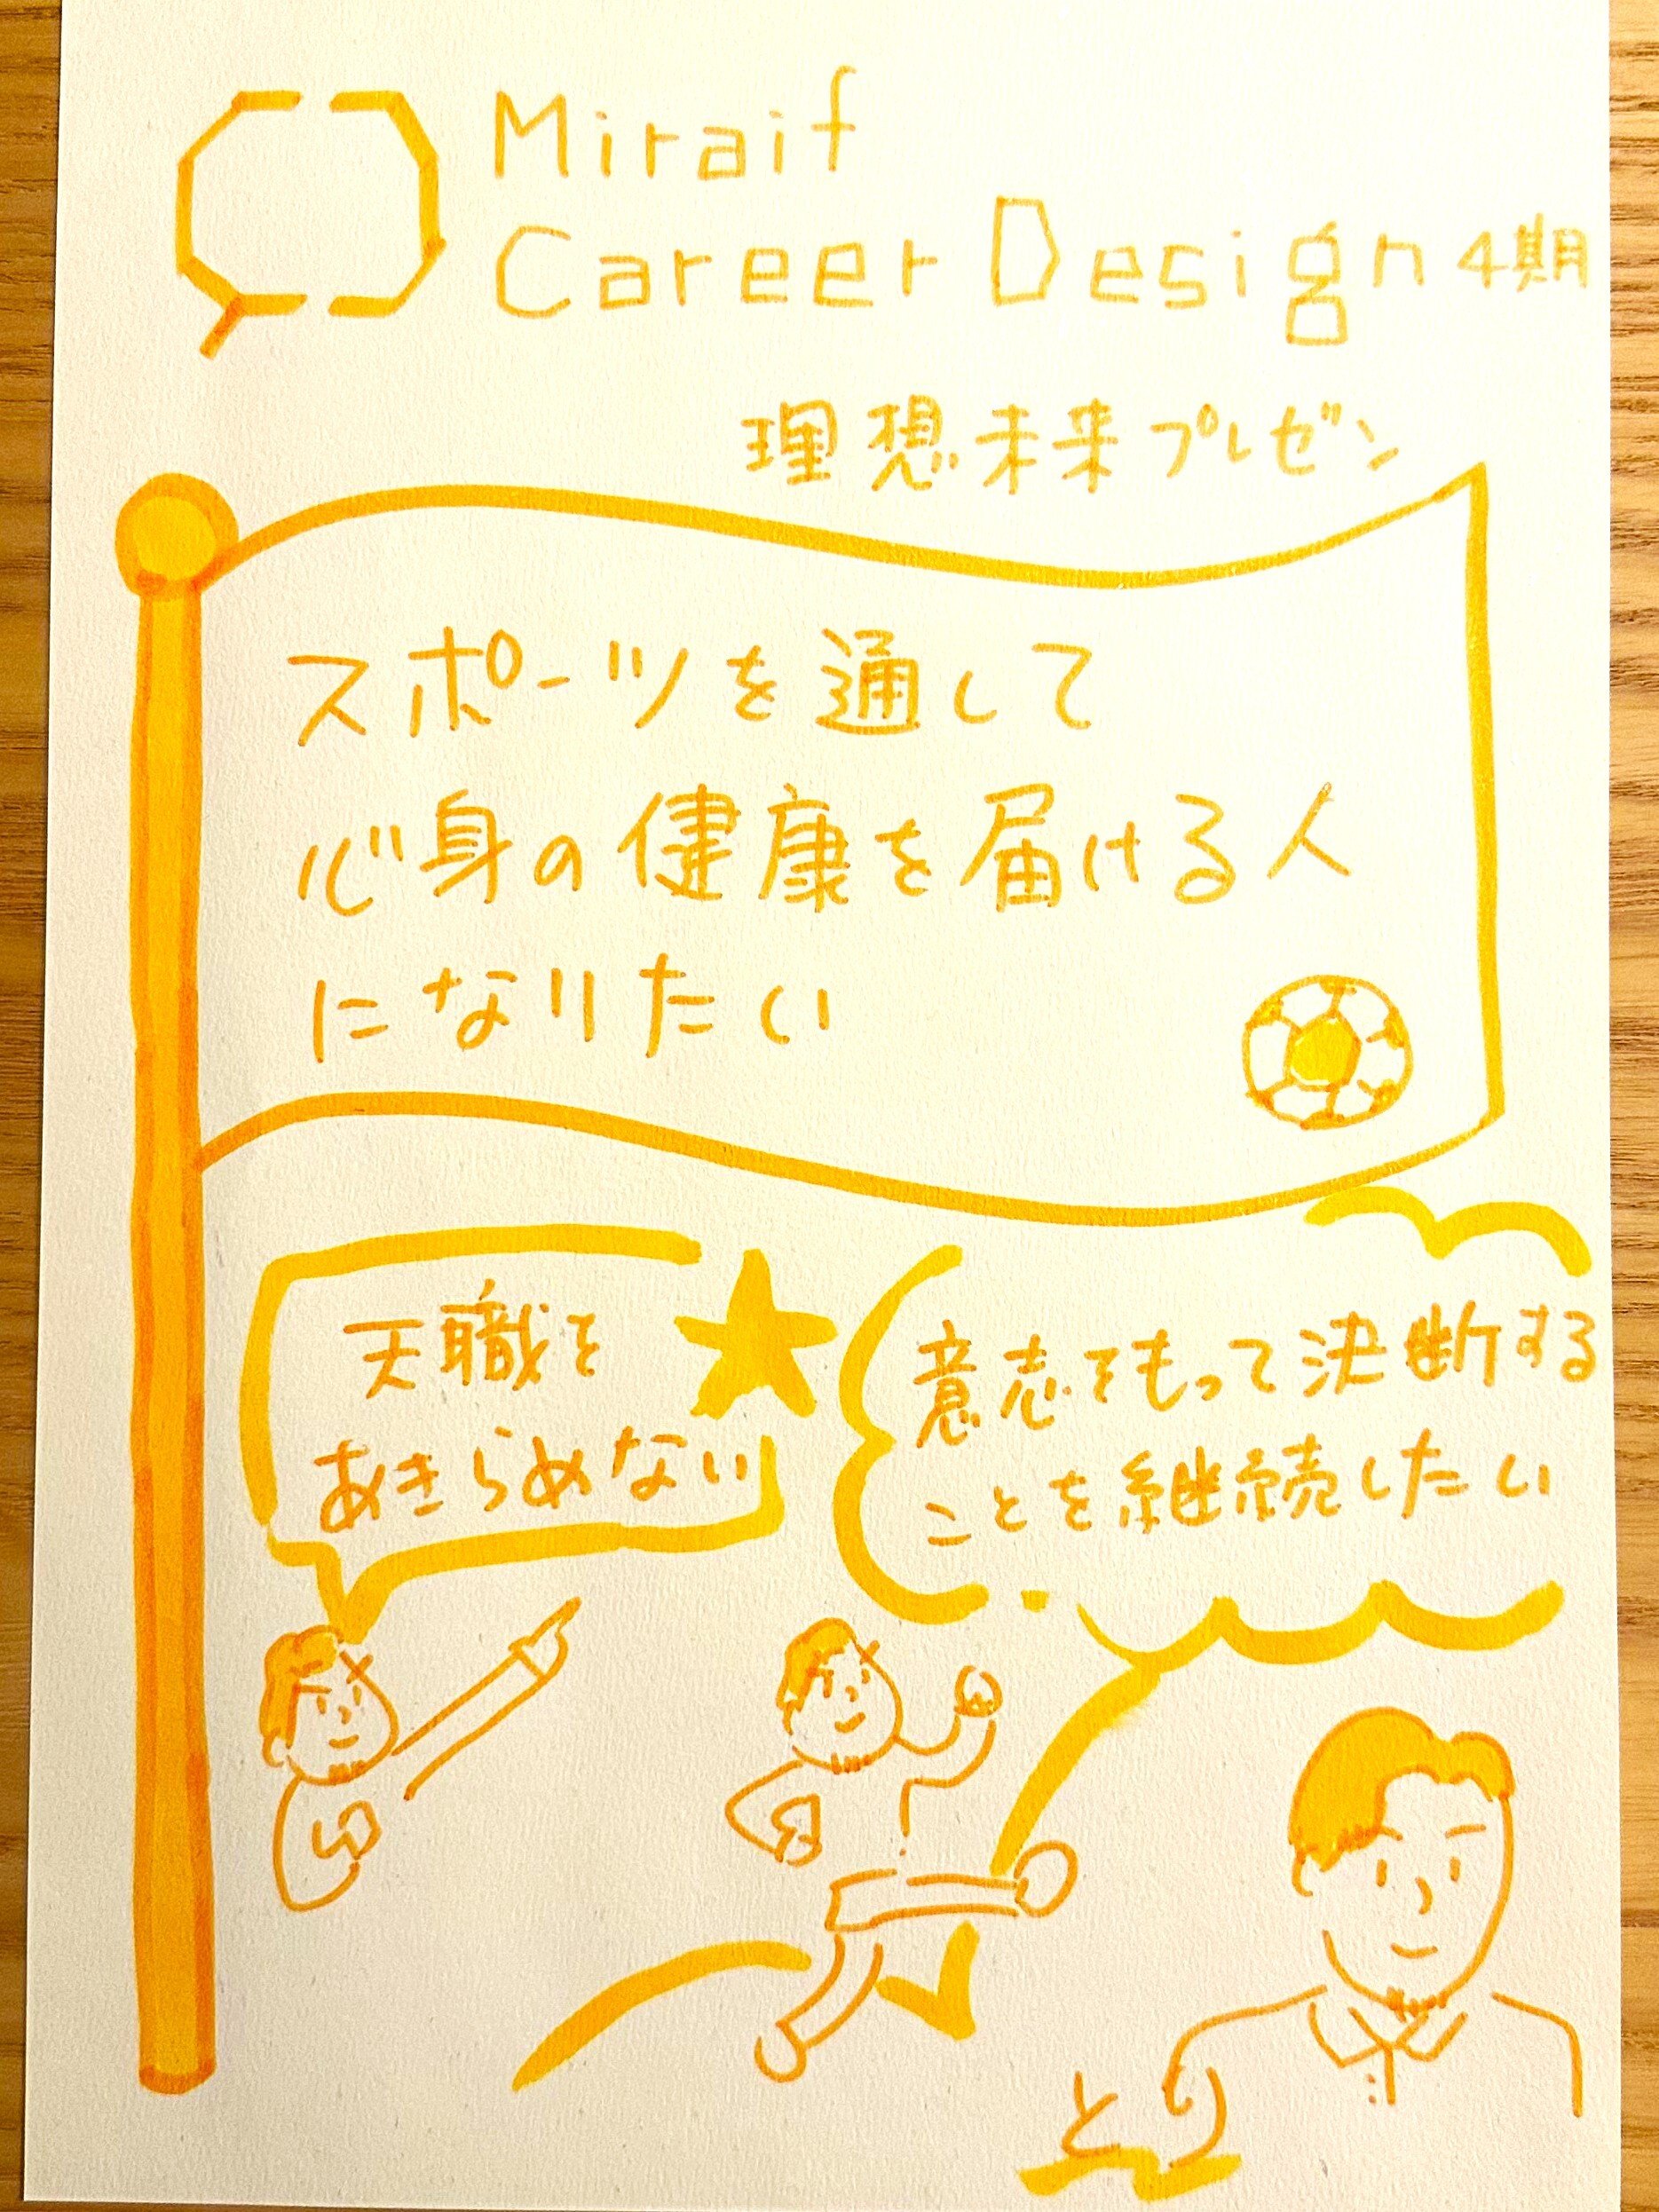 Miraif
Career Design 4期
理想未来プレゼン
スポーツを通して
心身の健康を届ける人
になりたい
天職を
あきらめない
意志をもって決断する
ことを継続したい